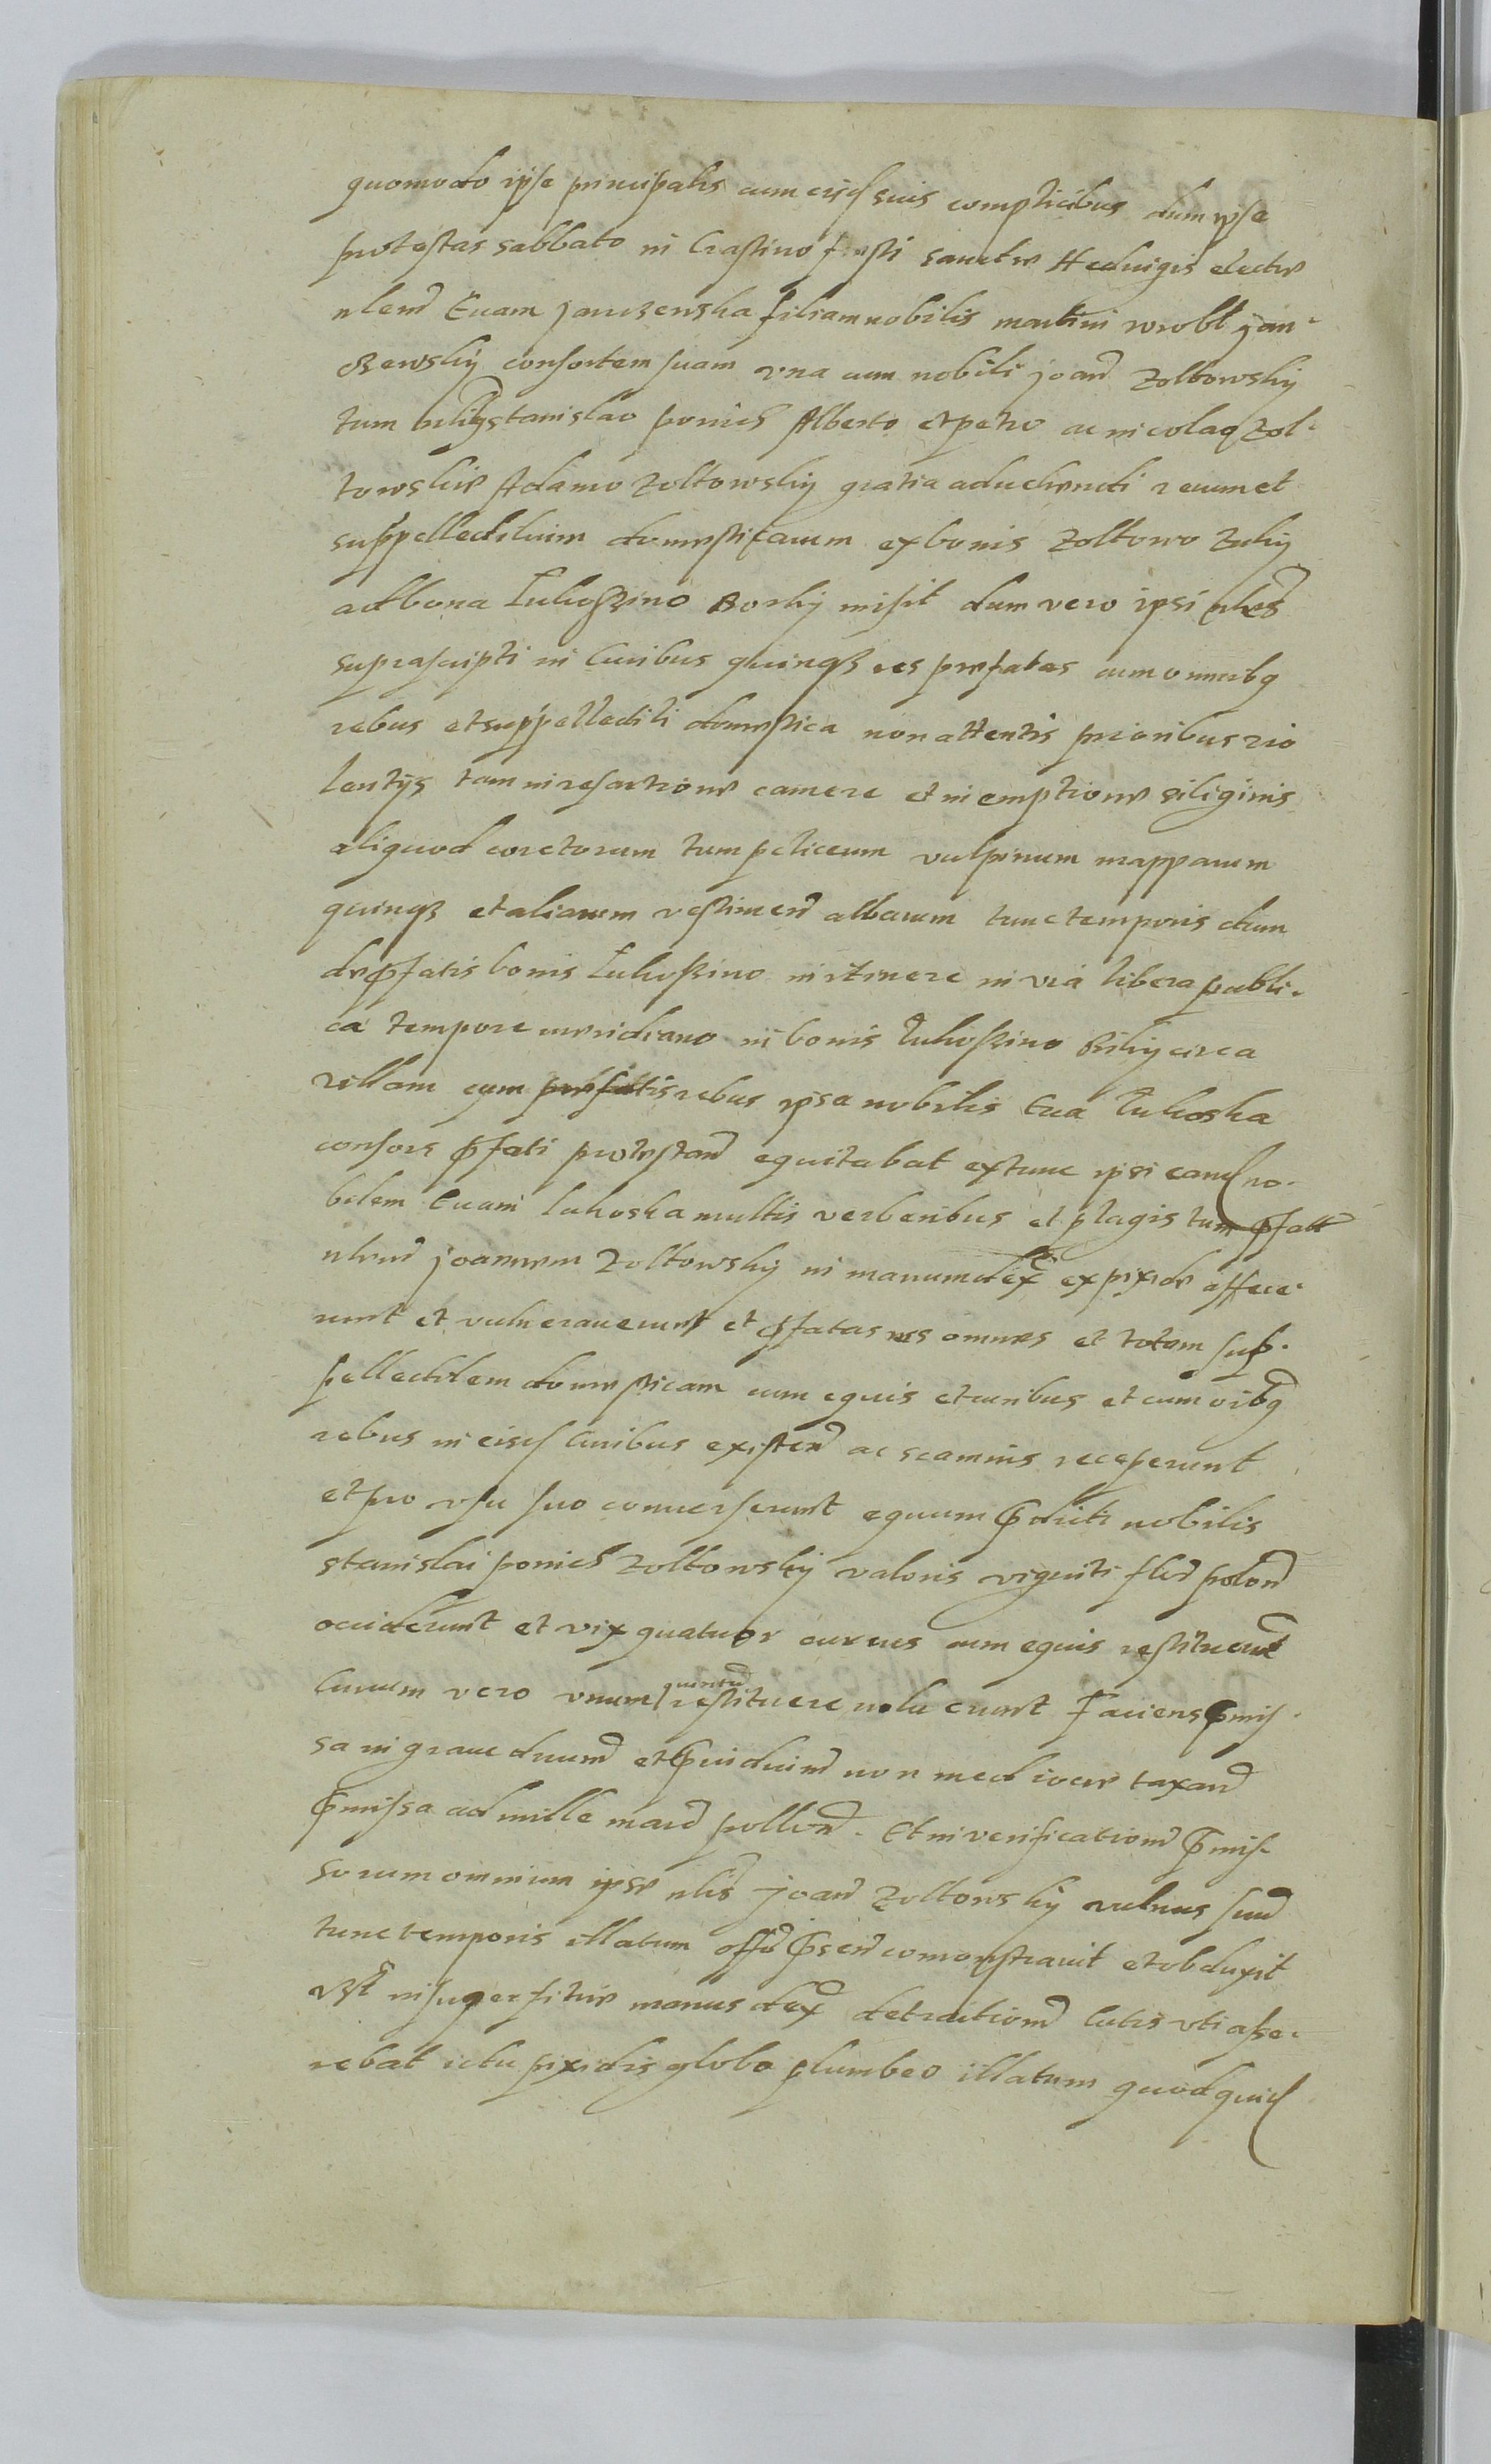 quomodo ipse principalis cum eisd suis complicibus dum ipse
protestas sabbato in Crastino festi sanctae Hedvigis electae
nlem Evam Janczewska filiam nobilis martini wrobl Jan-
czewsky consortem suam una cum nobili Joan Zoltowsky
tum Stanislao poniez Alberto et petro ac nicolao Zol-
towskie Adamo Zoltowsky gratia aduehendi rerum et
suppellectilium domesticarum ex bonis Zoltowo
ad bona Lukoszino Borky misit dum vero ipsi nles
suprascripti in Curibus quinq3 res praefatas cum omnibq
rebus et suppellectili domestica non attentis prioribus vio
lentijs tam in resartione camere et in emptione siliginis
aliquod coretorum tum peliceum vulpinum mapparum
quinq3 et aliarum vestimen albarum tunc temporis dum
de pfatis bonis Lukoszino in itinere in via libera publi-
ca tempore meridiano in bonis Lukoszino circa
villam cum praefatis rebus ipsa nobilis Eva Lukoska
consors pfati protestan equitabat extunc ipsi eand no-
bilem Evam Lukoska multis verberibus et plagis tum pfatt
nlem Joannem Zoltowsky in manum dex ex pixide affece-
runt et vulneraverunt et pfatas res omnes et totam sup-
pellectilem domesticam cum equis et curibus et cum oibq
rebus in eisd Curibus existen ac scamnis receperunt
et pro usu suo converserunt equum pdicti nobilis
Stanislai poniez Zoltowsky valoris viginti flor polon
occiderunt et vix quatuor currus cum equis restituerunt
Currum vero unum quintum restituere noluerunt faciens pmis-
sa in grave dnum et piudicium non mediocre taxan
pmissa ad mille marc pollon. Et in verificationem pmis-
sorum omnium ipse nlis Joan Zoltowsky vulnus suum
tunc temporis illatum offo psen comonstravit et obduxit
vzt in superfitie manus dex detractionem Cutis uti asse-
rebat ictu pixidis globo plumbeo illatum quodquid